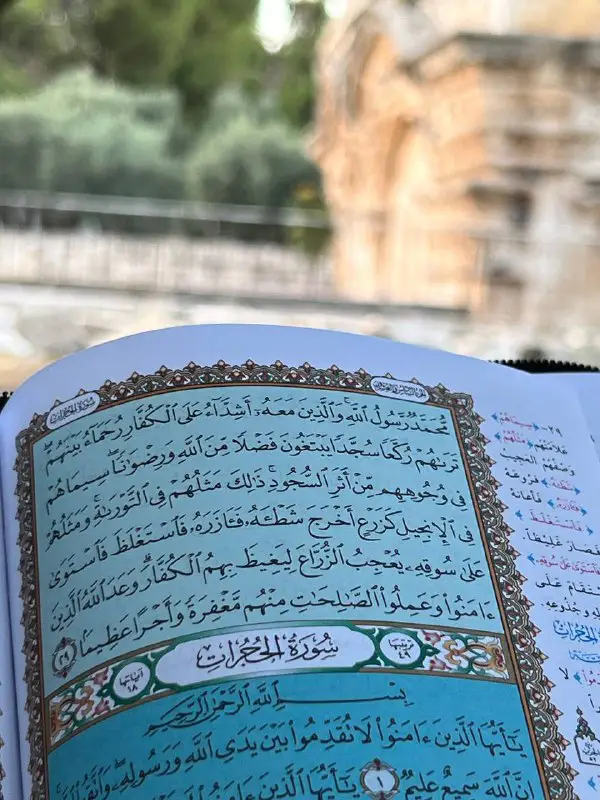 سُورَةُ الحُجُرَاتِ
مُّحَمَّدٌ رَّسُولُ ٱللَّهِ وَٱلَّذِينَ مَعَهُۥٓ أَشِدَّآءُ عَلَى ٱلْكُفَّارِ رُحَمَآءُ بَيْنَهُمْ
تَرَىٰهُمْ رُكَّعًا سُجَّدًا يَبْتَغُونَ فَضْلًا مِّنَ ٱللَّهِ وَرِضْوَٰنًا سِيمَاهُمْ
فِى وُجُوهِهِم مِّنْ أَثَرِ ٱلسُّجُودِ ذَٰلِكَ مَثَلُهُمْ فِى ٱلتَّوْرَىٰةِ وَمَثَلُهُمْ
فِى ٱلْإِنجِيلِ كَزَرْعٍ أَخْرَجَ شَطْـَٔهُۥ فَـَٔازَرَهُۥ فَٱسْتَغْلَظَ فَٱسْتَوَىٰ
عَلَىٰ سُوقِهِۦ يُعْجِبُ ٱلزُّرَّاعَ لِيَغِيظَ بِهِمُ ٱلْكُفَّارَ وَعَدَ ٱللَّهُ ٱلَّذِينَ
ءَامَنُوا۟ وَعَمِلُوا۟ ٱلصَّٰلِحَٰتِ مِنْهُم مَّغْفِرَةً وَأَجْرًا عَظِيمًۢا ٢٩
تَرتيبُها ٤٩ سُورَةُ الحُجُرَاتِ آيَاتُها ١٨
بِسْمِ ٱللَّهِ ٱلرَّحْمَٰنِ ٱلرَّحِيمِ
يَـٰٓأَيُّهَا ٱلَّذِينَ ءَامَنُوا۟ لَا تُقَدِّمُوا۟ بَيْنَ يَدَىِ ٱللَّهِ وَرَسُولِهِۦ وَٱتَّقُوا۟ ٱللَّهَ
إِنَّ ٱللَّهَ سَمِيعٌ عَلِيمٌ ١ يَـٰٓأَيُّهَا ٱلَّذِينَ ءَامَنُوا۟
٢٩ سِيمَاهُمْ
عَلَامَتُهُمْ
مَثَلُهُمْ
وَصْفُهُمُ العَجِيبُ
فَآزَرَهُ
فَأَعَانَهُ
فَاسْتَغْلَظَ
فَصَارَ غَلِيظًا
الحُجُرَات